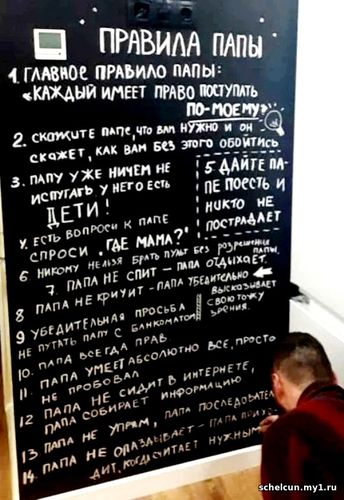 ПРАВИЛА ПАПЫ
1. ГЛАВНОЕ ПРАВИЛО ПАПЫ:
«КАЖДЫЙ ИМЕЕТ ПРАВО ПОСТУПАТЬ
ПО-МОЕМУ»
2. СКАЖИТЕ ПАПЕ, ЧТО ВАМ НУЖНО И ОН
СКАЖЕТ, КАК ВАМ БЕЗ ЭТОГО ОБОЙТИСЬ
3. ПАПУ УЖЕ НИЧЕМ НЕ
ИСПУГАТЬ У НЕГО ЕСТЬ
ДЕТИ!
4. ЕСТЬ ВОПРОСЫ К ПАПЕ
СПРОСИ „ГДЕ МАМА?"
5 ДАЙТЕ ПА-
ПЕ ПОЕСТЬ И
НИКТО НЕ
ПОСТРАДАЕТ
6 НИКОМУ НЕЛЬЗЯ БРАТЬ ПУЛЬТ БЕЗ РАЗРЕШЕНИЯ
ПАПЫ.
7. ПАПА НЕ СПИТ – ПАПА ОТДЫХАЕТ.
8 ПАПА НЕ КРИЧИТ - ПАПА УБЕДИТЕЛЬНО
ВЫСКАЗЫВАЕТ
СВОЮ ТОЧКУ
ЗРЕНИЯ.
9 УБЕДИТЕЛЬНАЯ ПРОСЬБА
НЕ ПУТАТЬ ПАПУ С БАНКОМАТОМ
10. ПАПА ВСЕГДА ПРАВ.
11. ПАПА УМЕЕТ АБСОЛЮТНО ВСЕ, ПРОСТО
НЕ ПРОБОВАЛ
12 ПАПА НЕ СИДИТ В ИНТЕРНЕТЕ,
ПАПА СОБИРАЕТ ИНФОРМАЦИЮ
13 ПАПА НЕ УПРЯМ, ПАПА ПОСЛЕДОВАТЕЛ
14. ПАПА НЕ ОПАЗДЫВАЕТ – ПАПА ПРИХО-
ДИТ, КОГДА СЧИТАЕТ НУЖНЫМ
schelcun.my1.ru